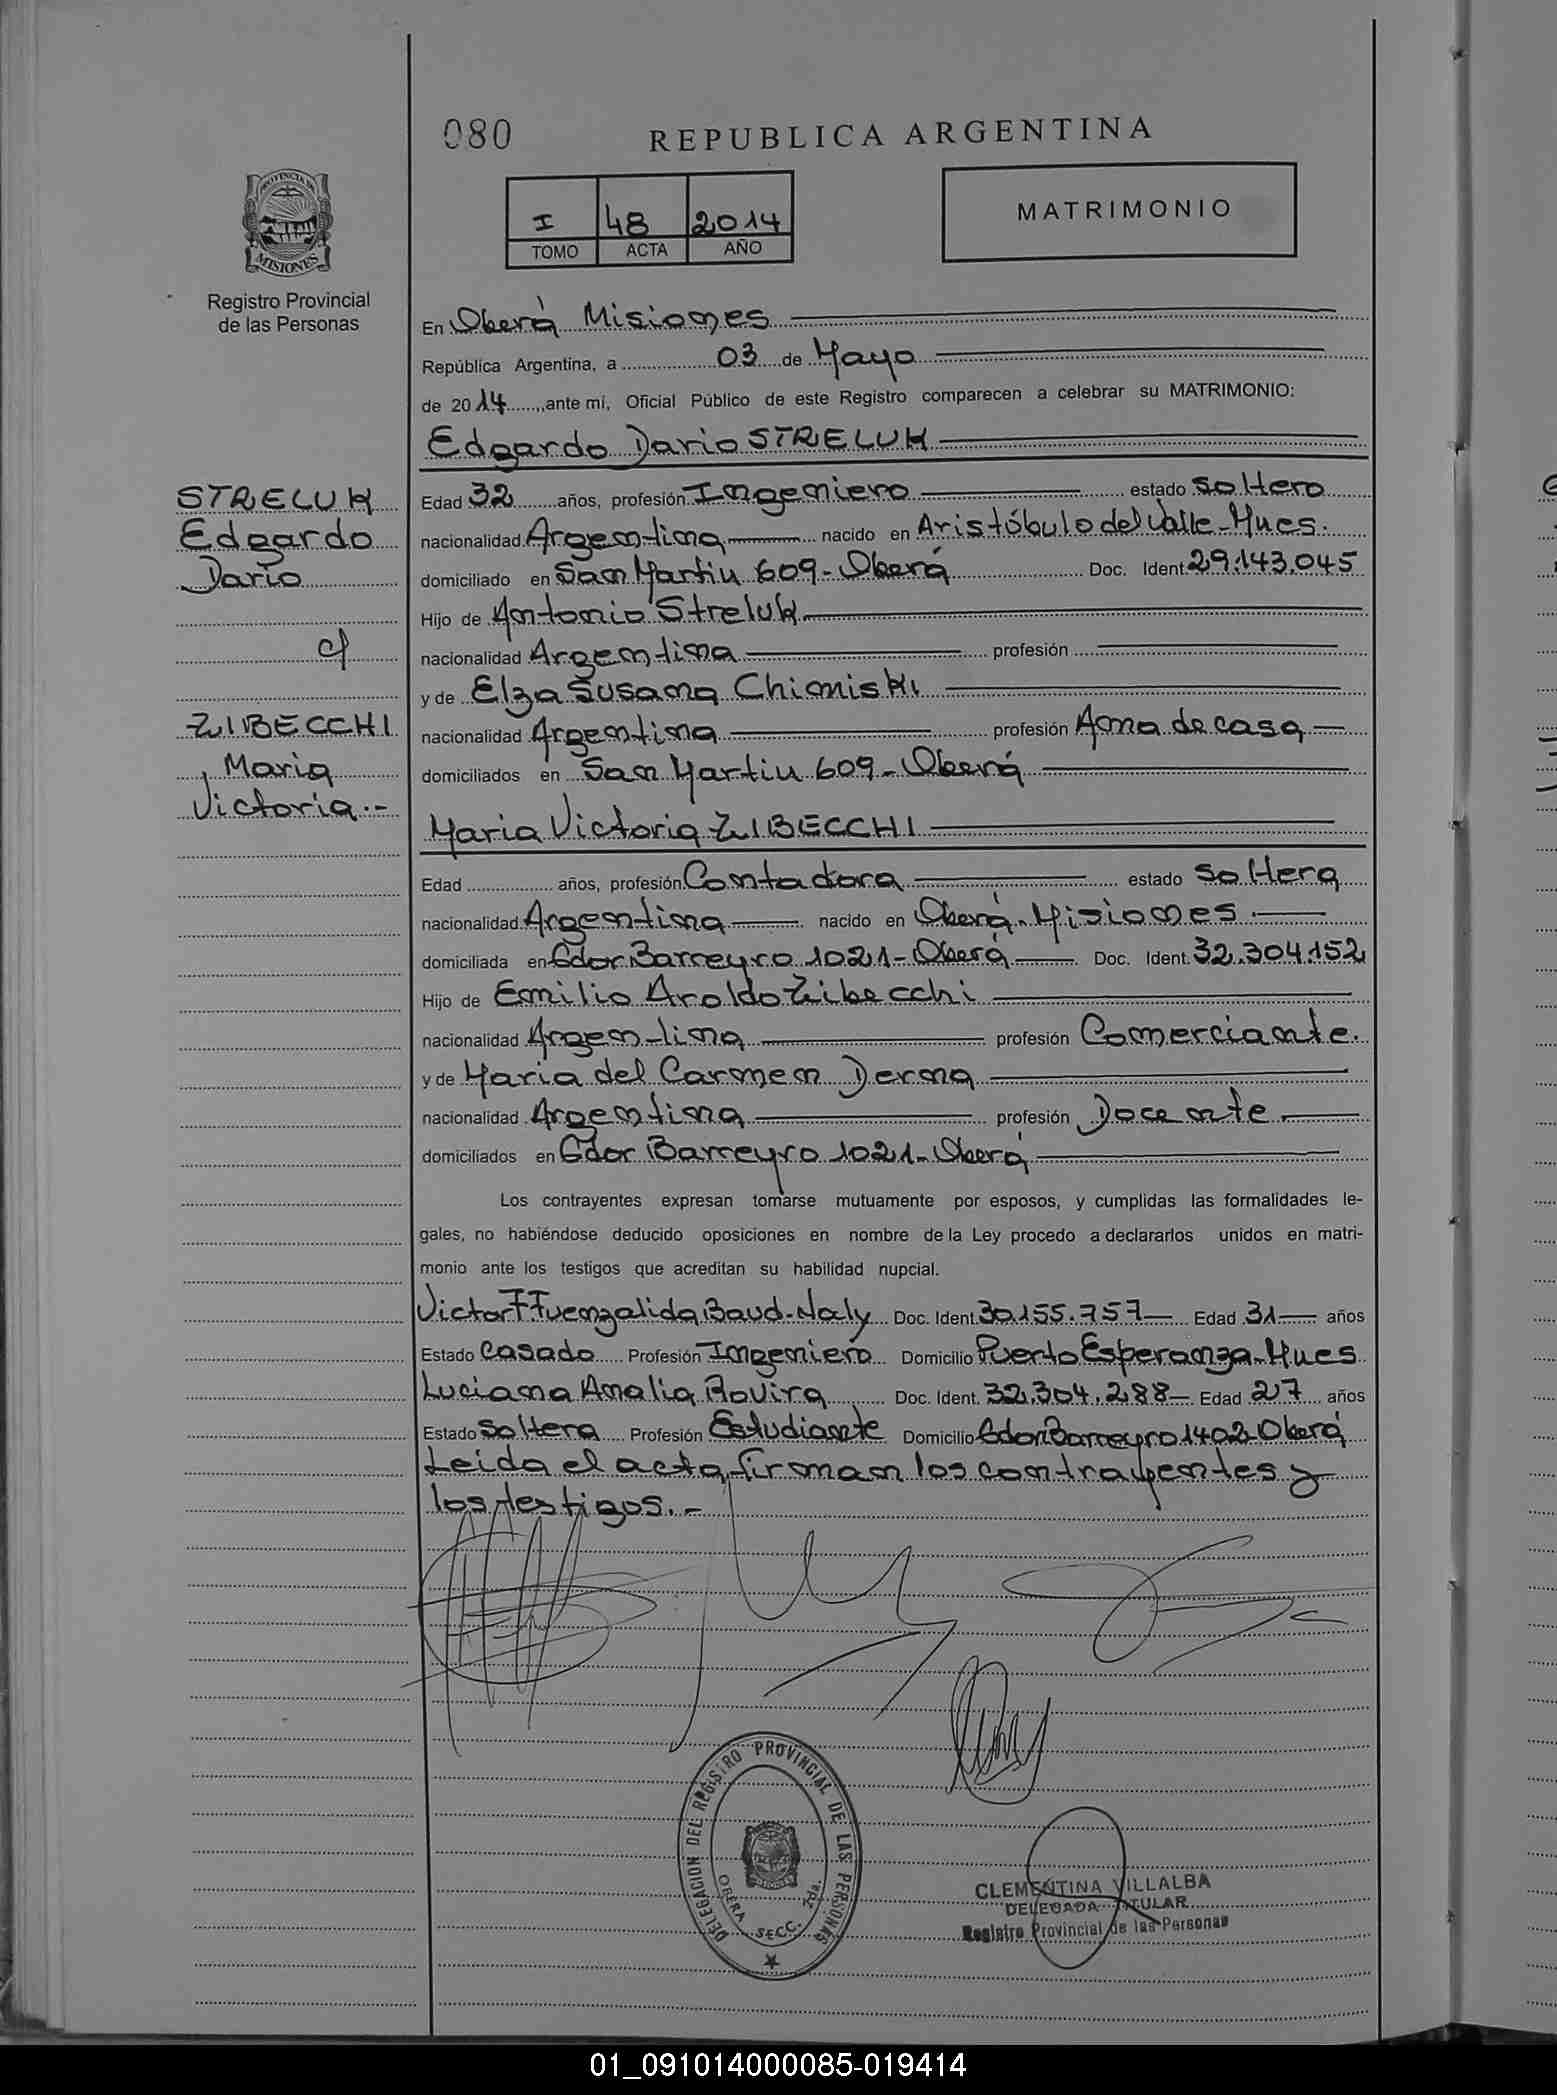 080
REPUBLICA ARGENTINA
I 48 2014
TOMO ACTA AÑO
MATRIMONIO
PROVINCIA DE
MISIONES
Registro Provincial
de las Personas
En Oberá Misiones
República Argentina, a 03 de Mayo
de 2014, ante mí, Oficial Público de este Registro comparecen a celebrar su MATRIMONIO:
Edgardo Dario STRELUK
STRELUK
Edgardo
Dario
c/
ZIBECCHI
Maria
Victoria.-
Edad 32 años, profesión Ingeniero estado soltero
nacionalidad Argentina nacido en Aristóbulo del Valle-Mnes.
domiciliado en San Martin 609-Oberá Doc. Ident. 29.143.045
Hijo de Antonio Streluk
nacionalidad Argentina profesión
y de Elza Susana Chimiski
nacionalidad Argentina profesión Ama de casa
domiciliados en San Martin 609-Oberá
Maria Victoria ZIBECCHI
Edad años, profesión Contadora estado soltera
nacionalidad Argentina nacido en Oberá-Misiones
domiciliada en Gdor. Barreyro 1021-Oberá Doc. Ident. 32.304.152
Hijo de Emilio Aroldo Zibecchi
nacionalidad Argentina profesión Comerciante.
y de Maria del Carmen Derna
nacionalidad Argentina profesión Docente
domiciliados en Gdor Barreyro 1021-Oberá
Los contrayentes expresan tomarse mutuamente por esposos, y cumplidas las formalidades le-
gales, no habiéndose deducido oposiciones en nombre de la Ley procedo a declararlos unidos en matri-
monio ante los testigos que acreditan su habilidad nupcial.
Victor F. Fuenzalida Baud-Naly Doc. Ident. 30.155.757 Edad 31 años
Estado Casado Profesión Ingeniero Domicilio Puerto Esperanza-Mnes
Luciana Amalia Rovira Doc. Ident. 32.304.288 Edad 27 años
Estado Soltera Profesión Estudiante Domicilio Gdor Barreyro 1402 Oberá
Leida el acta, firman los contrayentes y
los testigos.-
DELEGACION DEL REGISTRO PROVINCIAL DE LAS PERSONAS
OBERA SECC. 2da.
CLEMENTINA VILLALBA
DELEGADA TITULAR
Registro Provincial de las Personas
01_091014000085-019414